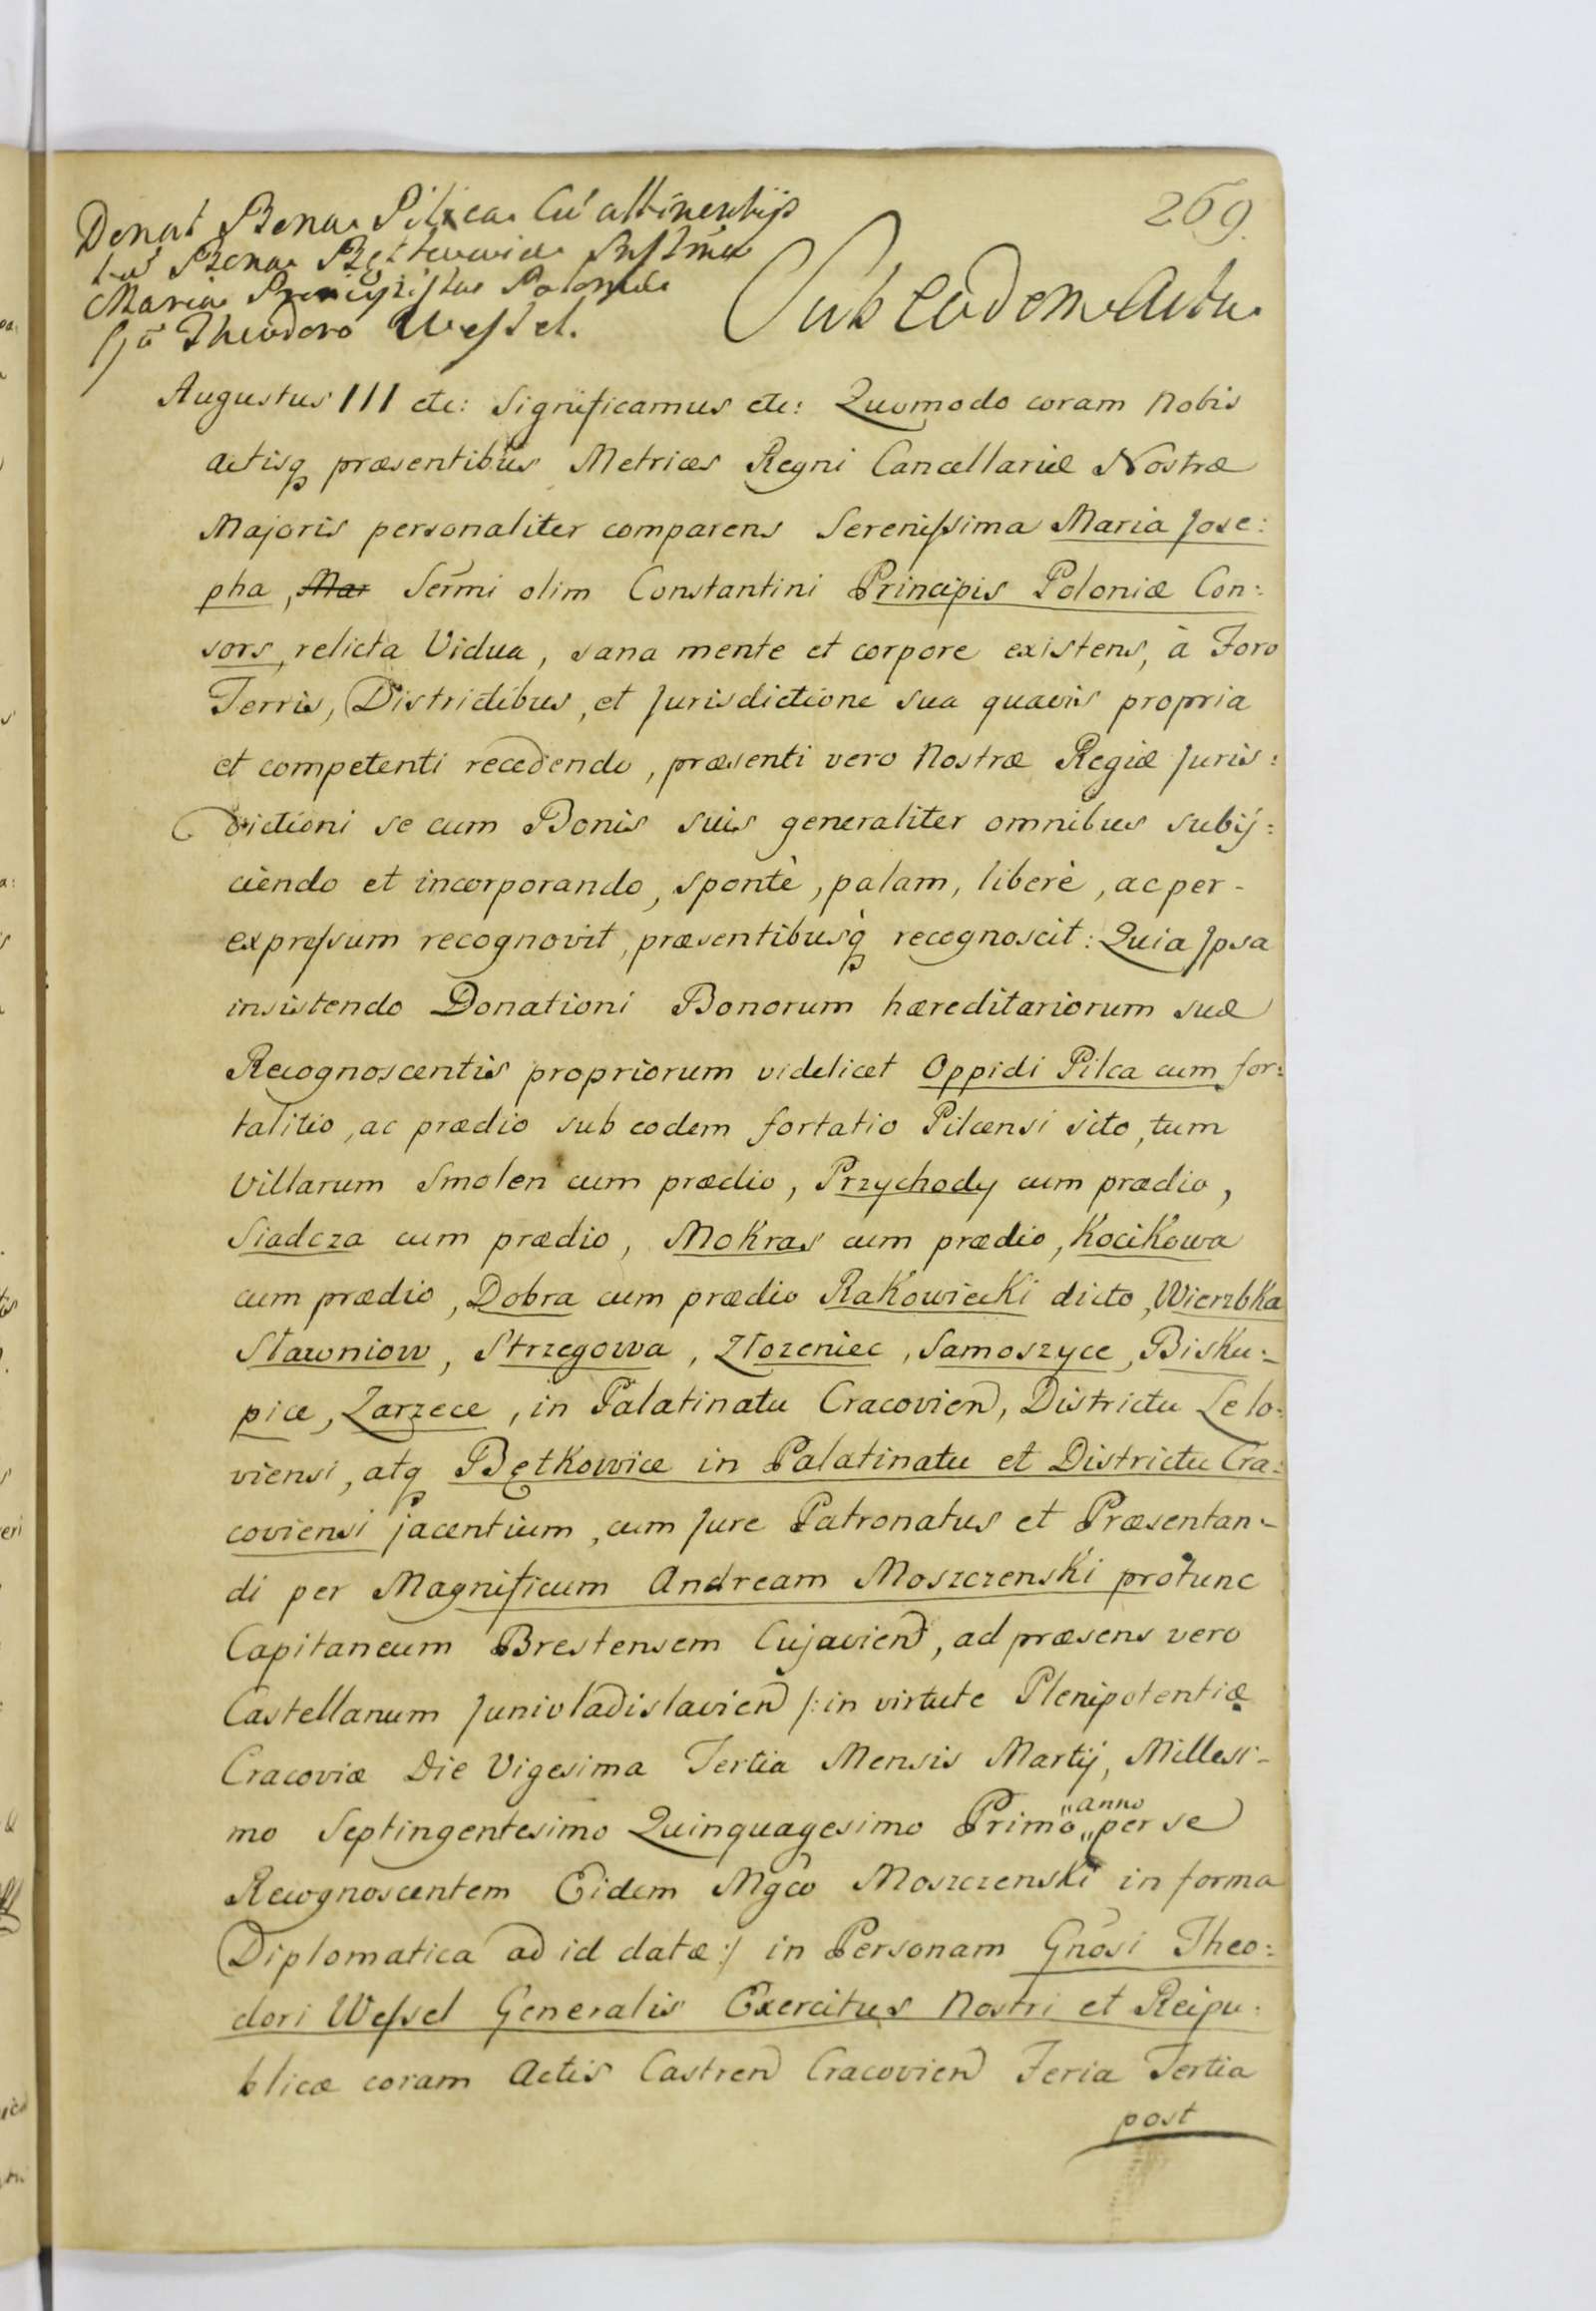 269.
Donat Bona Pilica Cu attinentijs
tu Bona Będkowice Sersma
Maria Principissa Poloniae
Gō Theodoro Wessel.
Sub eodem Actu
Augustus III etc: Significamus etc: Quomodo coram Nobis
actisq praesentibus Metrices Regni Cancellariæ Nostræ
Majoris personaliter comparens Serenissima Maria Jose:
pha, Mar Sermi olim Constantini Principis Poloniæ Con:
sors, relicta Vidua, sana mente et corpore existens, à Foro
Terris, Districtibus, et Jurisdictione sua quavis propria
et competenti recedendo, præsenti vero Nostræ Regiæ Juris:
dictioni se cum Bonis suis generaliter omnibus subij:
ciendo et incorporando, spontè, palam, liberè, ac per-
expressum recognovit, præsentibusq́ recognoscit: Quia Jpsa
insistendo Donationi Bonorum hæreditariorum suæ
Recognoscentis propriorum videlicet Oppidi Pilca cum for:
talitio, ac prædio sub eodem fortatio Pilcensi sito, tum
Villarum Smolen cum prædio, Przychody cum prædio,
Siadcza cum prædio, Mokras cum prædio, Kocikowa
cum prædio, Dobra cum prædio Rakowiecki dicto, Wierzbka
Sławniow, Strzegowa, Złozeniec, Samoszyce, Bisku:
pice, Zarzece, in Palatinatu Cracovien, Districtu Lelo:
viensi, atq Bętkowice in Palatinatu et Districtu Cra:
coviensi jacentium, cum Jure Patronatus et Præsentan-
di per Magnificum Andream Moszczenski protunc
Capitaneum Brestensem Cujavien, ad præsens vero
Castellanum Junivladislavien /: in virtute Plenipotentiæ
Cracoviæ Die Vigesima Tertia Mensis Martij, Millesi-
mo Septingentesimo Quinquagesimo Primo „anno„ per se
Recognoscentem Eidem Mgco Moszczenski in forma
Diplomatica ad id datæ :/ in Personam Gnosi Theo:
dori Wessel Generalis Exercitus Nostri et Reipu:
blicæ coram Actis Castren Cracovien Feria Tertia
post